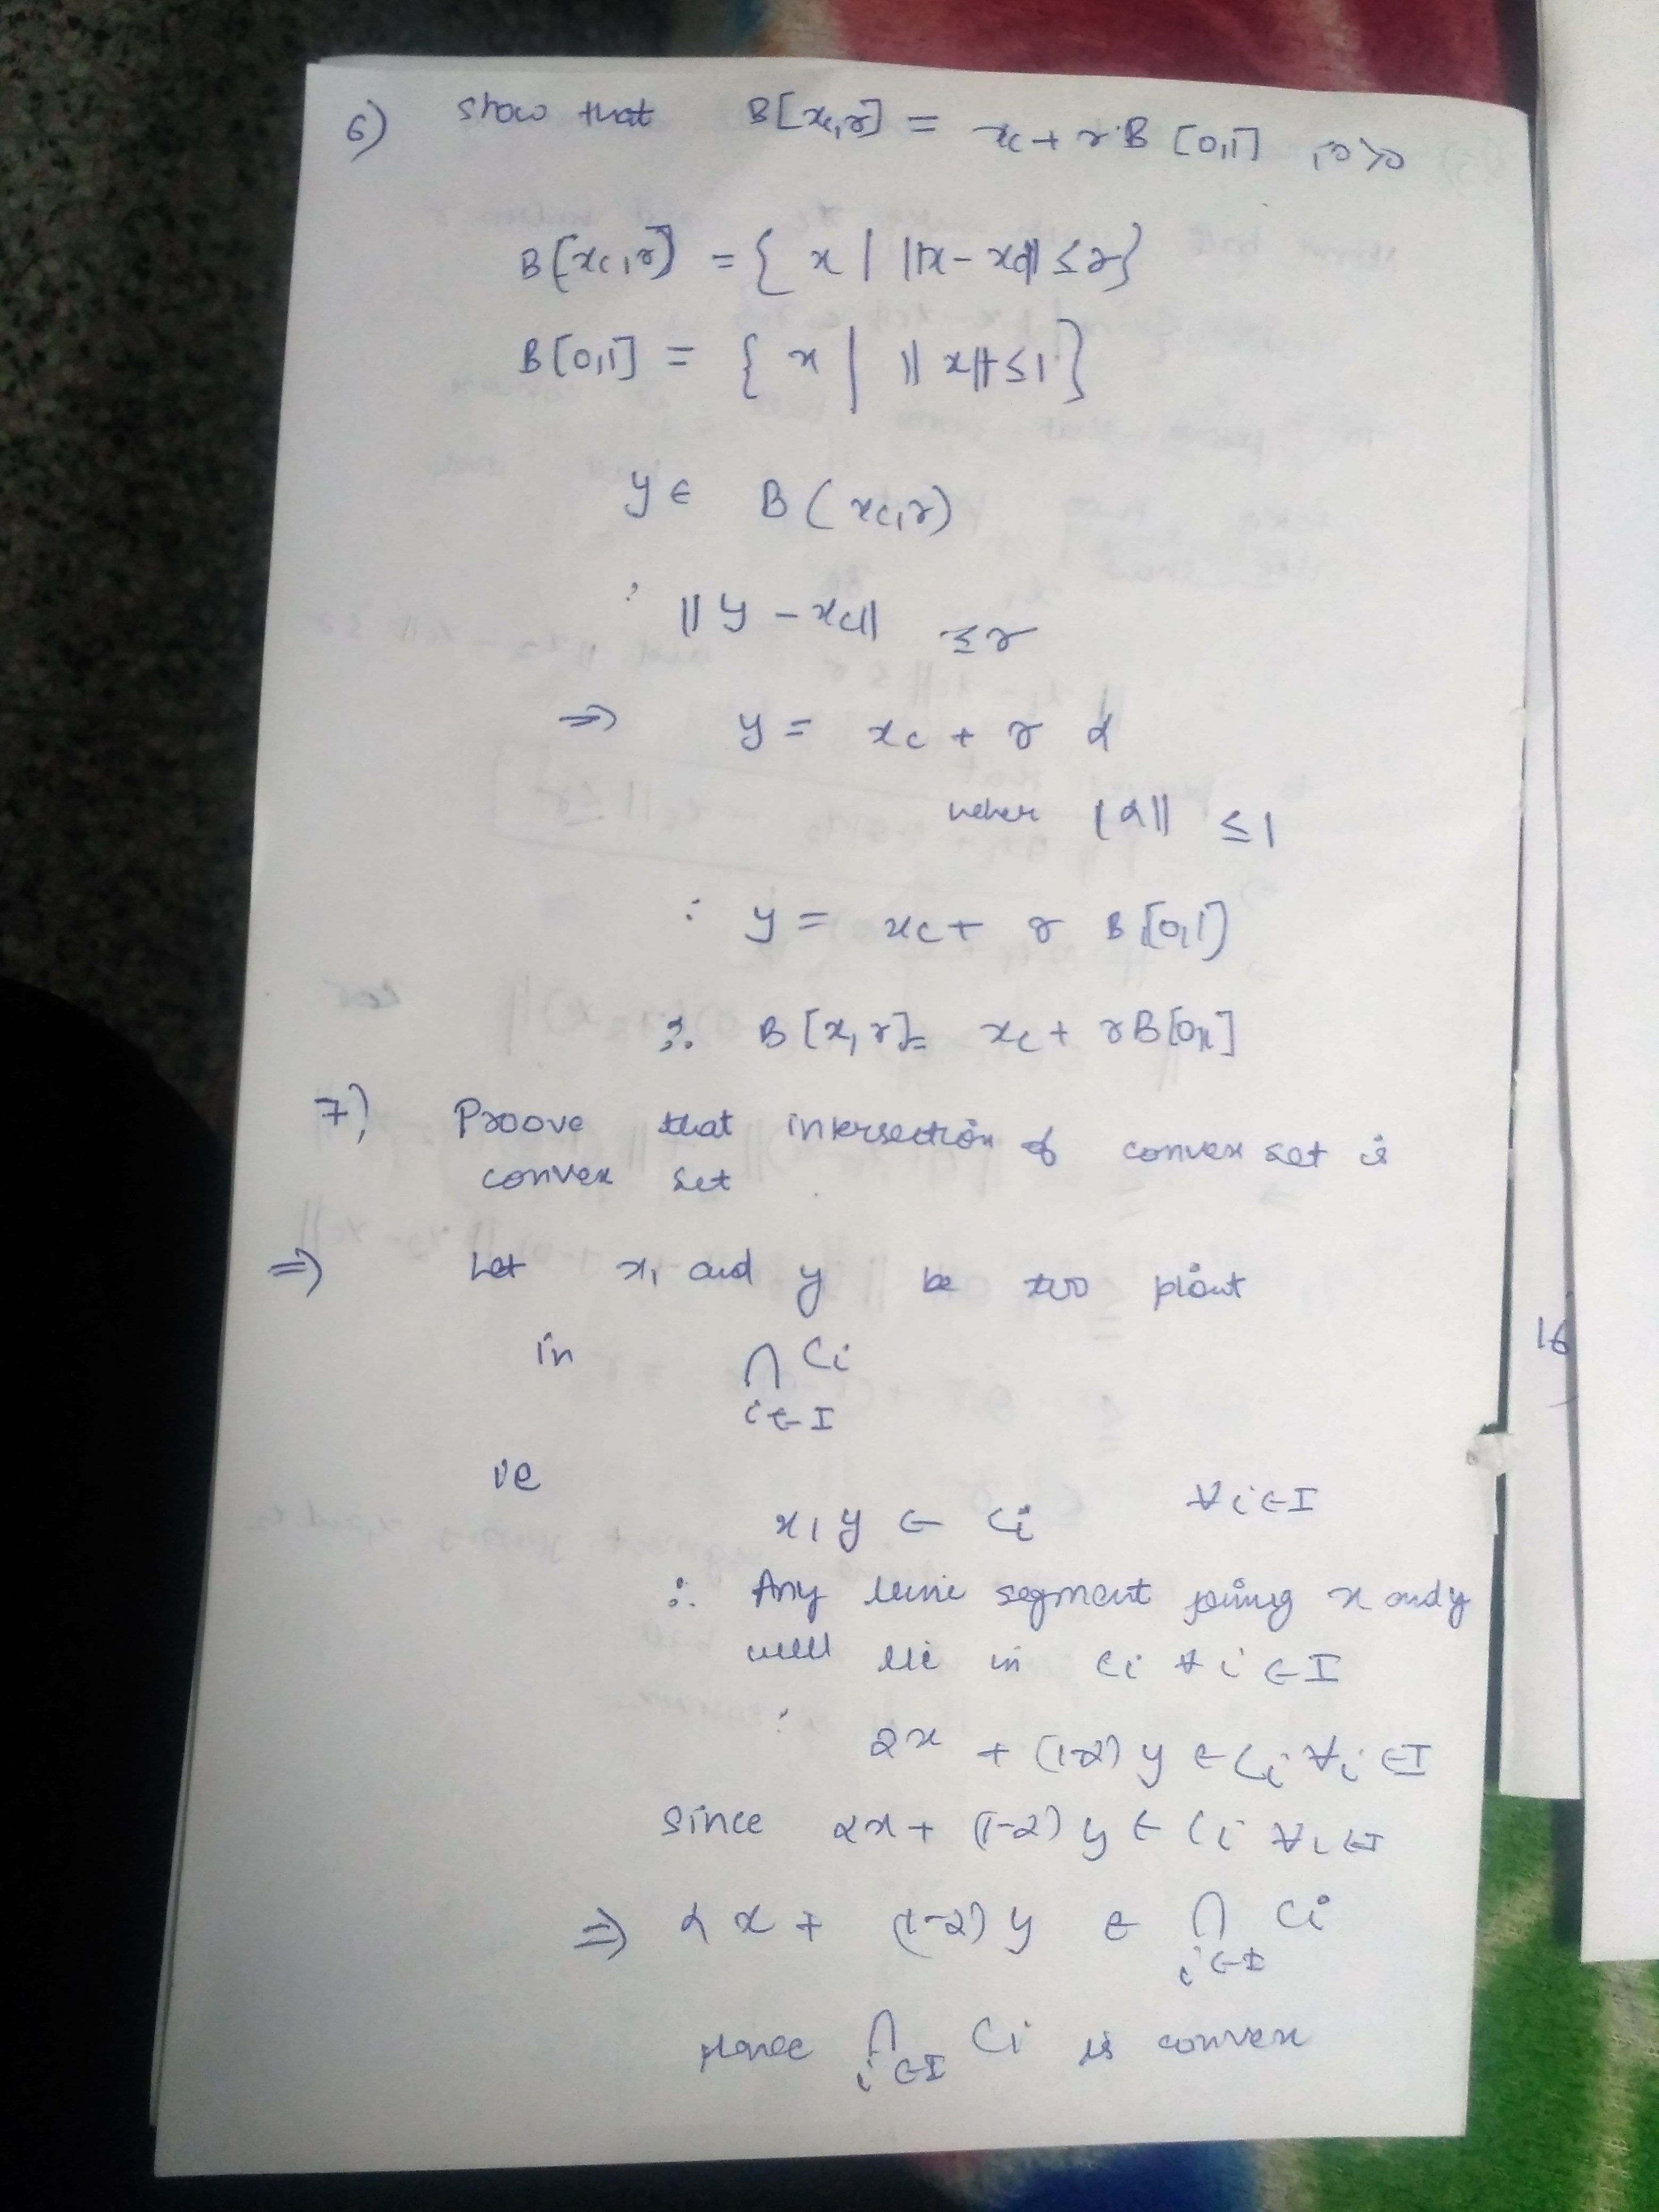 6) Show that B[xc,r] = xc + r B [0,1] , r>0
B[xc,r] = { x | ||x - xc|| ≤ r}
B[0,1] = { x | || x|| ≤ 1 }
y ∈ B (xc,r)
∴ || y - xc|| ≤ r
⇒ y = xc + r α
wher ||α|| ≤ 1
∴ y = xc + r B[0,1]
∴ B[x,r] = xc + rB[0,1]
7) Proove that intersection of convex set is
convex set
⇒ Let x, and y be two piont
in ⋂ Ci
i∈I
ie
x, y ∈ Ci ∀ i ∈ I
∴ Any line segment joining x and y
will lie in Ci ∀ i ∈ I
∴ αx + (1-α) y ∈ Ci ∀ i ∈ I
Since αx + (1-α) y ∈ Ci ∀ i ∈ I
⇒ αx + (1-α) y ∈ ⋂ Ci
i ∈ I
Hence ⋂ Ci is convex
i ∈ I
16